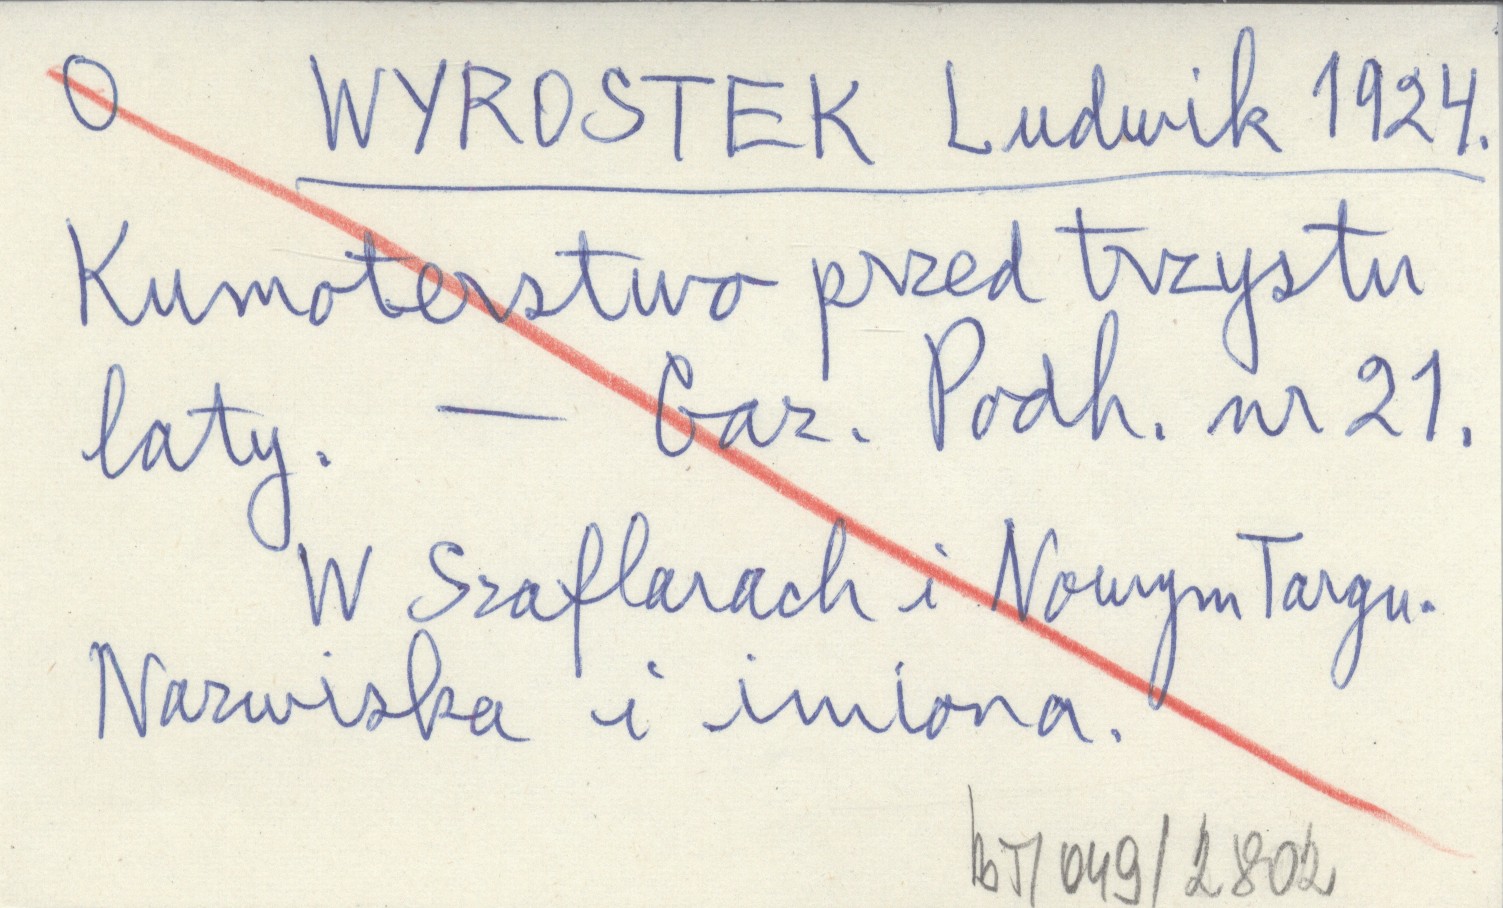 O WYROSTEK Ludwik 1924.
Kumoterstwo przed trzystu
laty. — Gaz. Podh. nr 21.
W Szaflarach i Nowym Targu.
Nazwiska i imiona.
049/2802